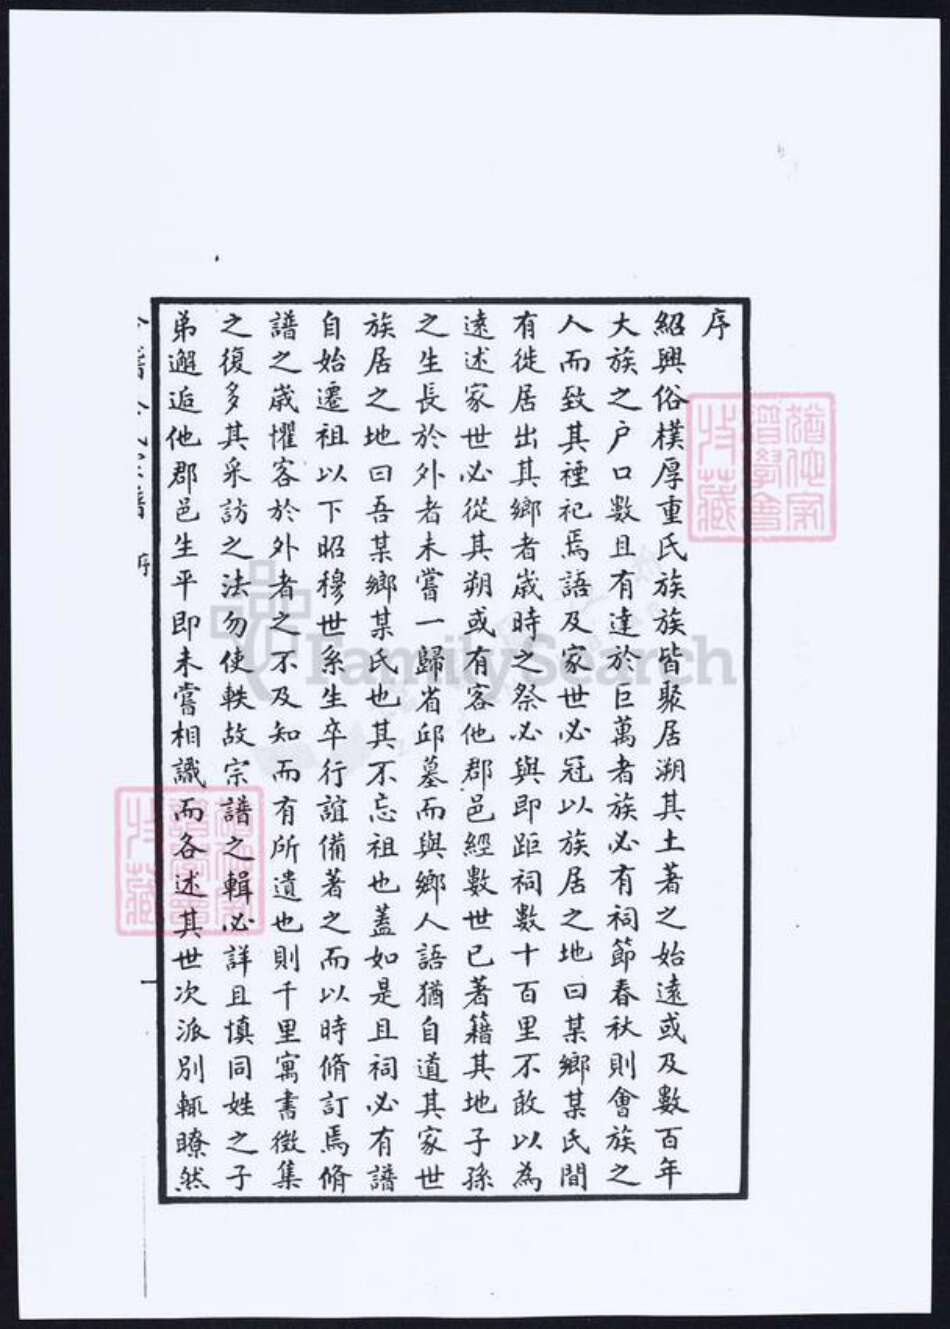 序
紹興俗樸厚重氏族族皆聚居溯其土著之始遠或及數百年
大族之户口數且有達於巨萬者族必有祠節春秋則會族之
人而致其禋祀焉語及家世必冠以族居之地曰某鄉某氏間
有徙居出其鄉者歲時之祭必與即距祠數十百里不敢以為
遠述家世必從其朔或有客他郡邑經數世已著籍其地子孫
之生長於外者未嘗一歸省邱墓而與鄉人語猶自道其家世
族居之地曰吾某鄉某氏也其不忘祖也蓋如是且祠必有譜
自始遷祖以下昭穆世系生卒行誼備著之而以時脩訂焉脩
譜之歲懼客於外者之不及知而有所遺也則千里寓書徵集
之復多其采訪之法勿使軼故宗譜之輯必詳且慎同姓之子
弟邂逅他郡邑生平即未嘗相識而各述其世次派別輒瞭然
序
一
FamilySearch